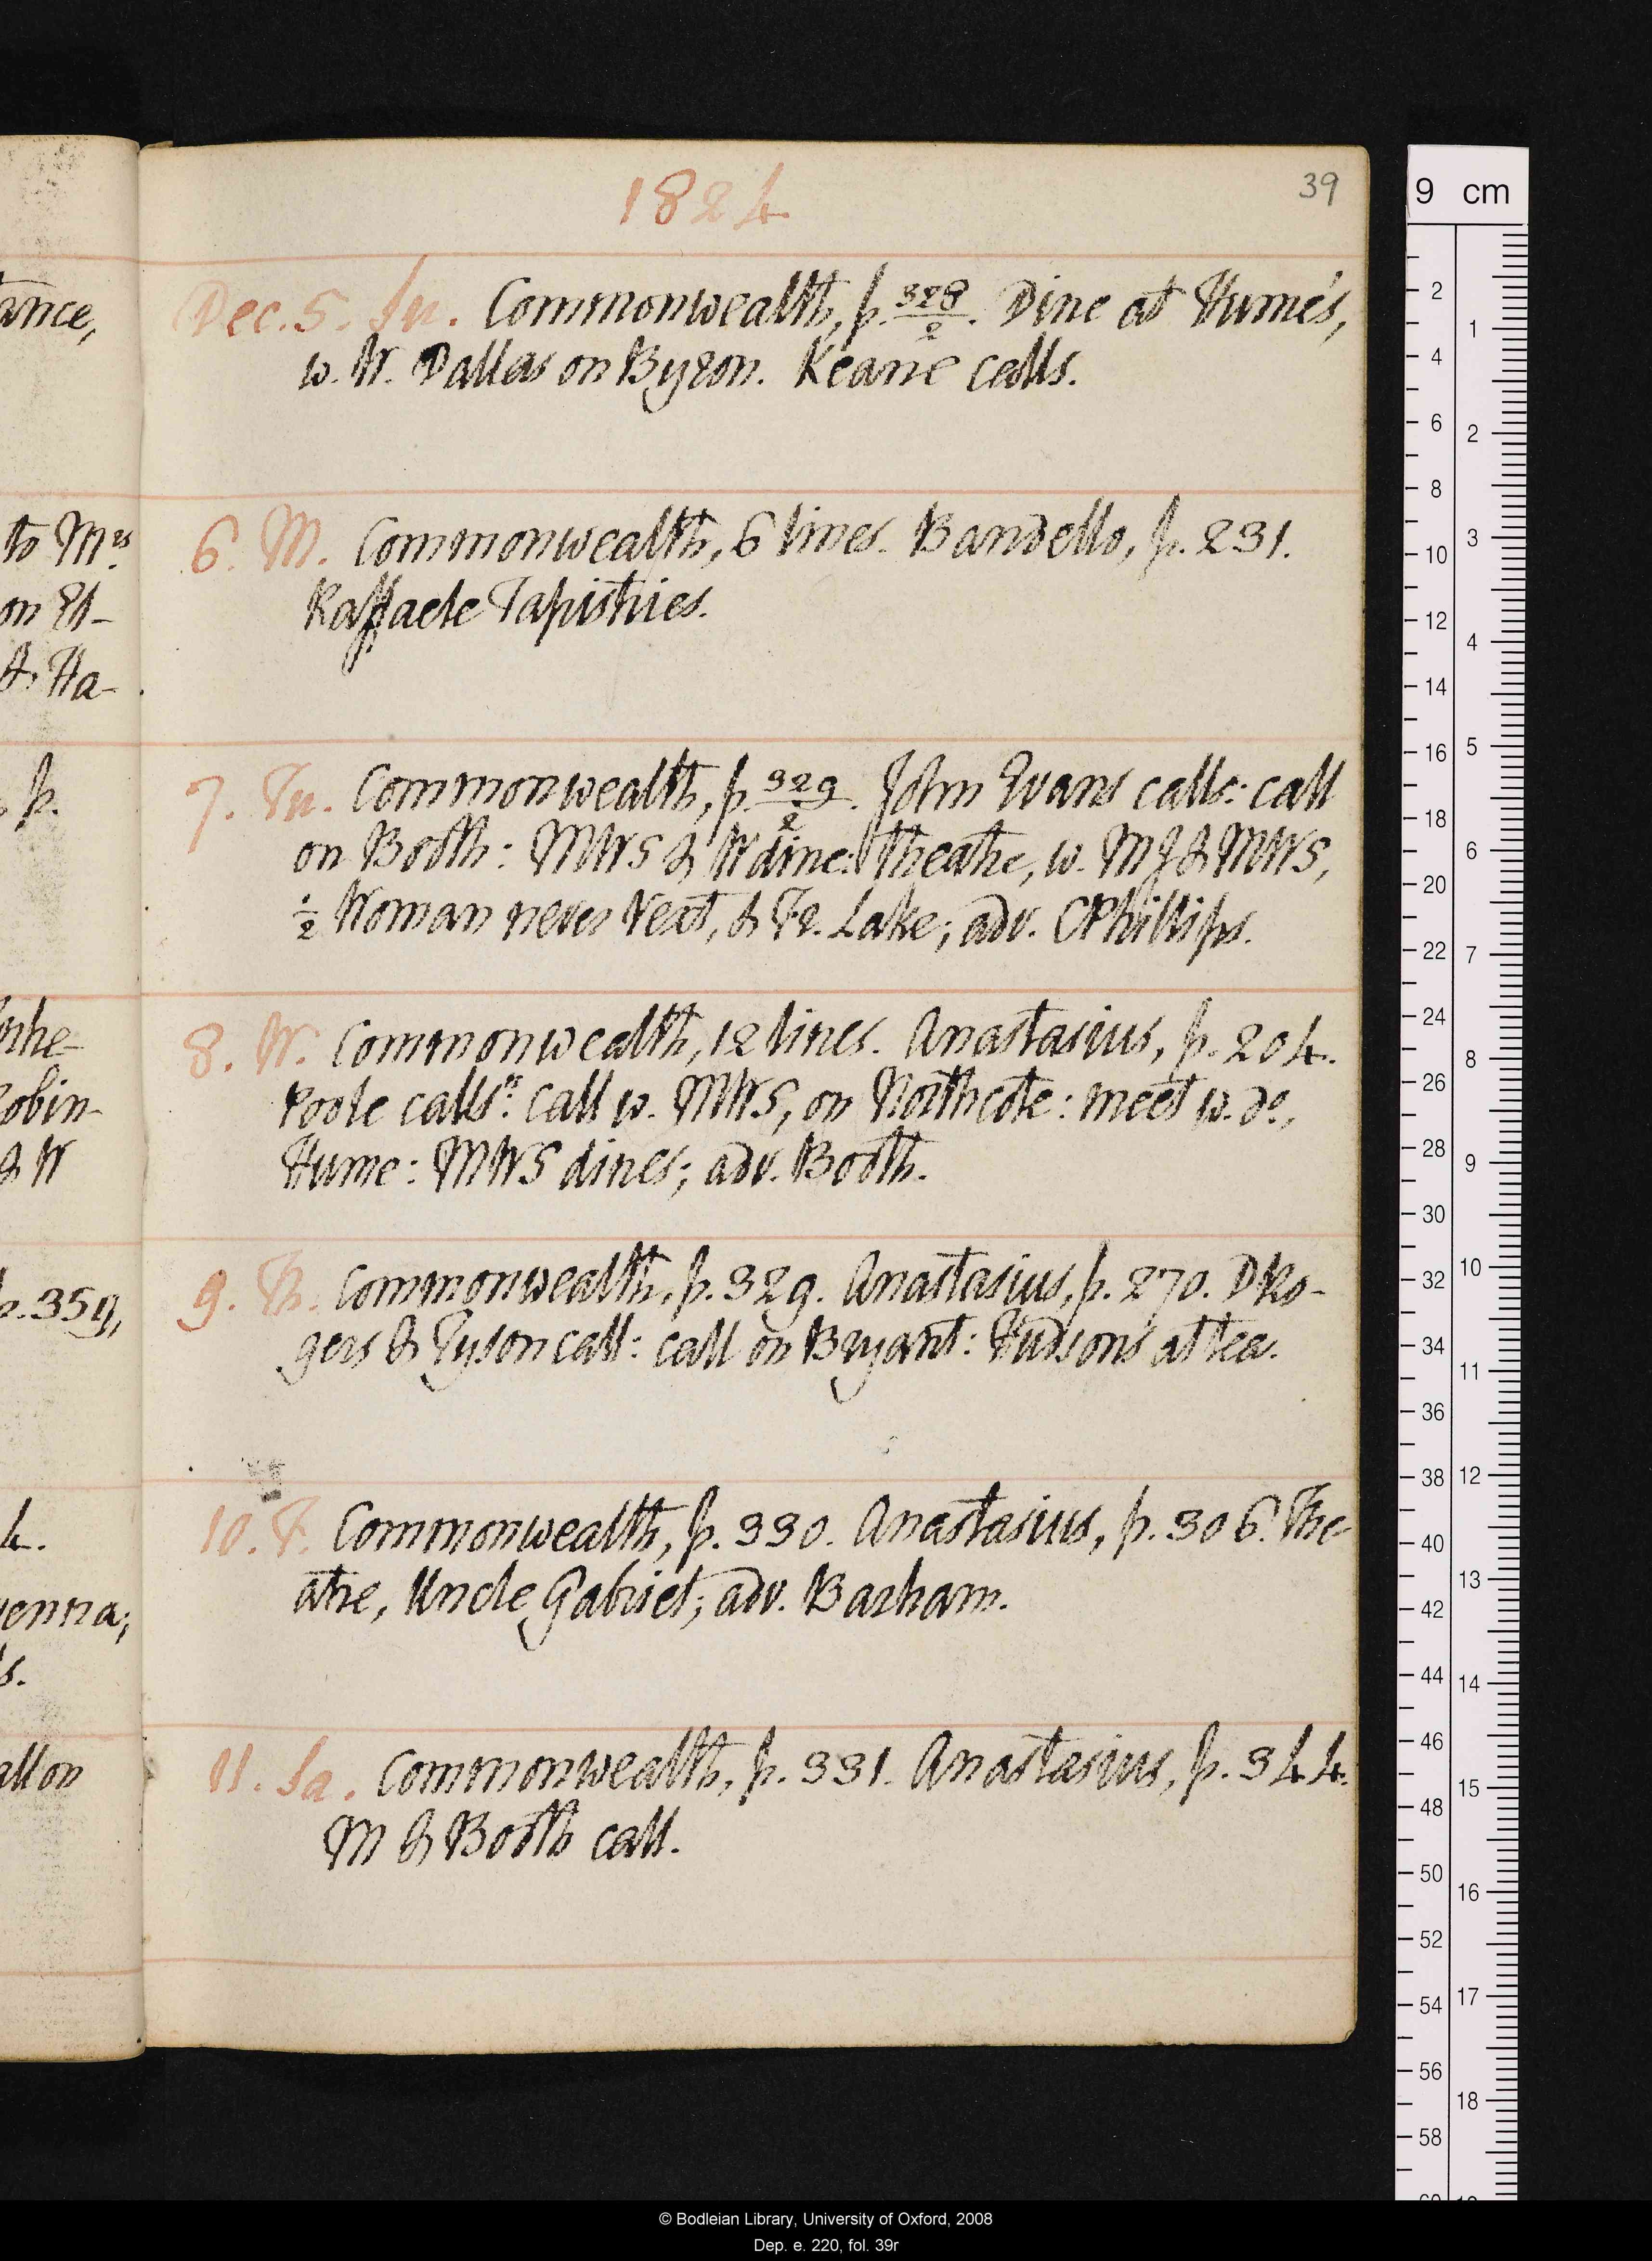 1824
39
Dec. 5. Su. Commonwealth, p. 328/2. Dine at Hume's,
w. W. Dallas on Byron. Keane calls.
6. M. Commonwealth, 6 lines. Bandello, p. 231.
Raffaele Tapistries.
7. Tu. Commonwealth, p. 329/2. John Evans calls: call
on Booth: MWS & W dine: Theatre, w. MJ & MWS,
1/2 Woman never Vext, & Fr. Lake; adv. CPhillips.
8. W. Commonwealth, 12 lines. Anastasius, p. 204.
Poole calls n: call w. MWS, on Northcote: meet w. do,
Hume: MWS dines; adv. Booth.
9. Th. Commonwealth, p. 329. Anastasius, p. 270. DRo-
gers & Tyson call: call on Bryant: Hudsons at tea.
10. F. Commonwealth, p. 330. Anastasius, p. 306. The
atre, Uncle Gabriel; adv. Barham.
11. Sa. Commonwealth, p. 331. Anastasius, p. 344.
M & Booth call.
ance,
to Mrs
on El-
& Ha-
p.
obin-
& W
p. 359,
4.
venna;
s.
all on
9 cm
2 4 6 8 10 12 14 16 18 20 22 24 26 28 30 32 34 36 38 40 42 44 46 48 50 52 54 56 58
1 2 3 4 5 6 7 8 9 10 11 12 13 14 15 16 17 18
© Bodleian Library, University of Oxford, 2008
Dep. e. 220, fol. 39r